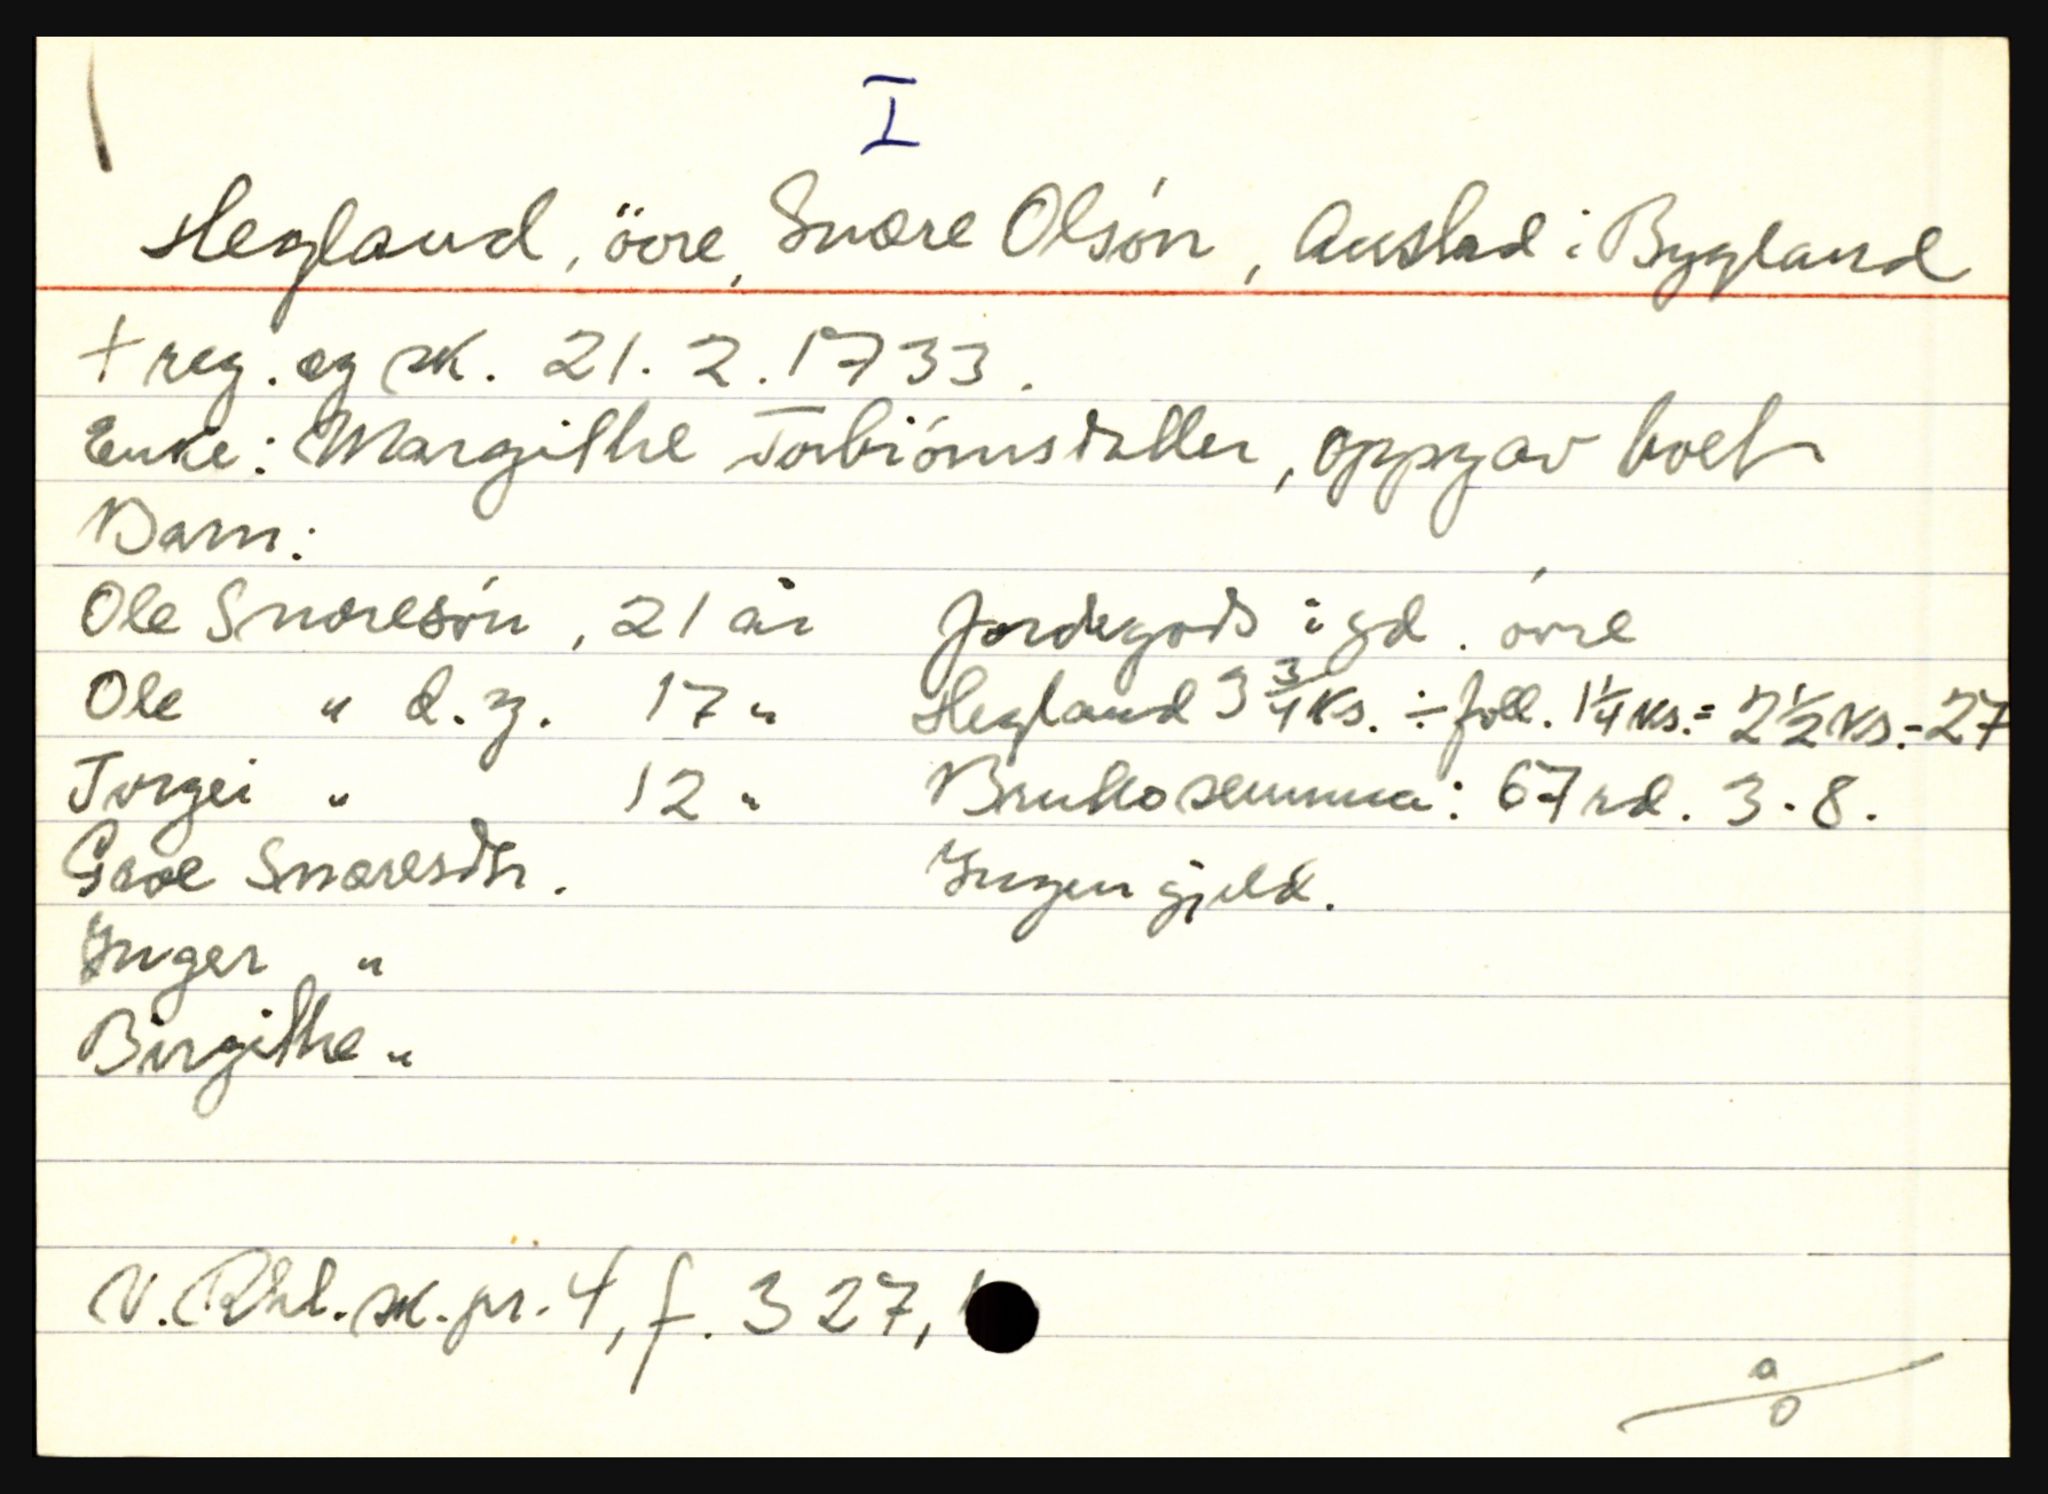 I
Hegland, övre, Snære Olsón, Austad i Bygland
+ reg. og sk. 21. 2. 1733.
Enke: Margithe Torbiórnsdatter, oppgav boet
Barn:
Ole Snæresón, 21 år
Ole " d.y. 17 "
Torgei " 12 "
Gave Snæresdtr.
Inger "
Birgithe "
Jordegods i gd. óvre
Hegland 3 3/4 ks. ÷ foll. 1 1/4 ks. = 2 1/2 ks. - 27
Bruttosumma: 67 rd. 3 - 8.
Ingen gjeld.
N. Rbl. sk. pr. 4, f. 327,
a
o